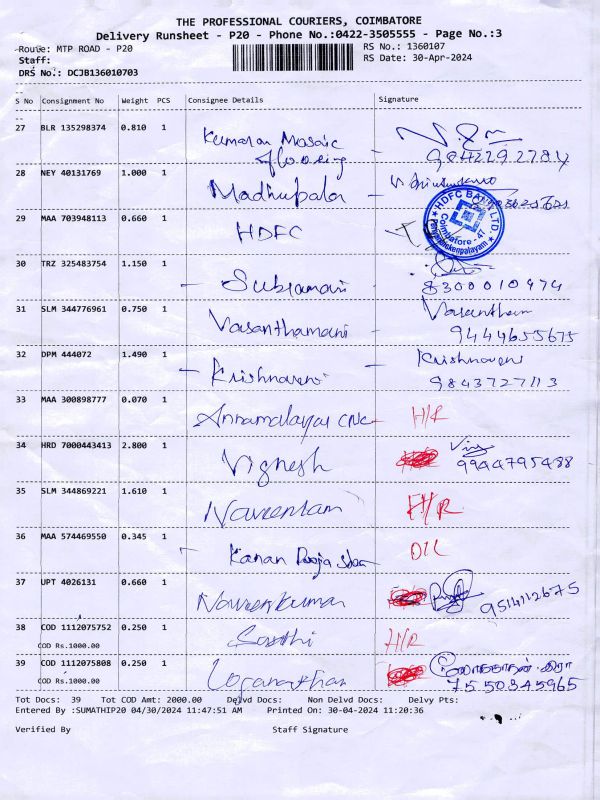 THE PROFESSIONAL COURIERS, COIMBATORE
Delivery Runsheet - P20 - Phone No.:0422-3505555 - Page No.:3
Route: MTP ROAD - P20 RS No.: 1360107
Staff: RS Date: 30-Apr-2024
DRS No.: DCJB136010703
S No Consignment No Weight PCS Consignee Details Signature
27 BLR 135298374 0.810 1 Kumaran Mosaic
flooring 9842292784
28 NEY 40131769 1.000 1 Madhubala
29 MAA 703948113 0.660 1 HDFC
HDFC BANK LTD.
Coimbatore - 47
30 TRZ 325483754 1.150 1 Subramani 8300010974
31 SLM 344776961 0.750 1 Vasanthamani Vasantham
9444655675
32 DPM 444072 1.490 1 Krishnaveni Krishnaveni
9843727113
33 MAA 300898777 0.070 1 Annamalayar CNC H/R
34 HRD 7000443413 2.800 1 Vignesh 9944795488
35 SLM 344869221 1.610 1 H/R
36 MAA 574469550 0.345 1 Kanan Pooja OIL
37 UPT 4026131 0.660 1 Naveenkumar 9514112675
38 COD 1112075752 0.250 1 Sakthi H/R
COD Rs.1000.00
39 COD 1112075808 0.250 1 Loganathan
COD Rs.1000.00 7550345965
Tot Docs: 39 Tot COD Amt: 2000.00 Delvd Docs: Non Delvd Docs: Delvy Pts:
Entered By :SUMATHIP20 04/30/2024 11:47:51 AM Printed On: 30-04-2024 11:20:36
Verified By Staff Signature